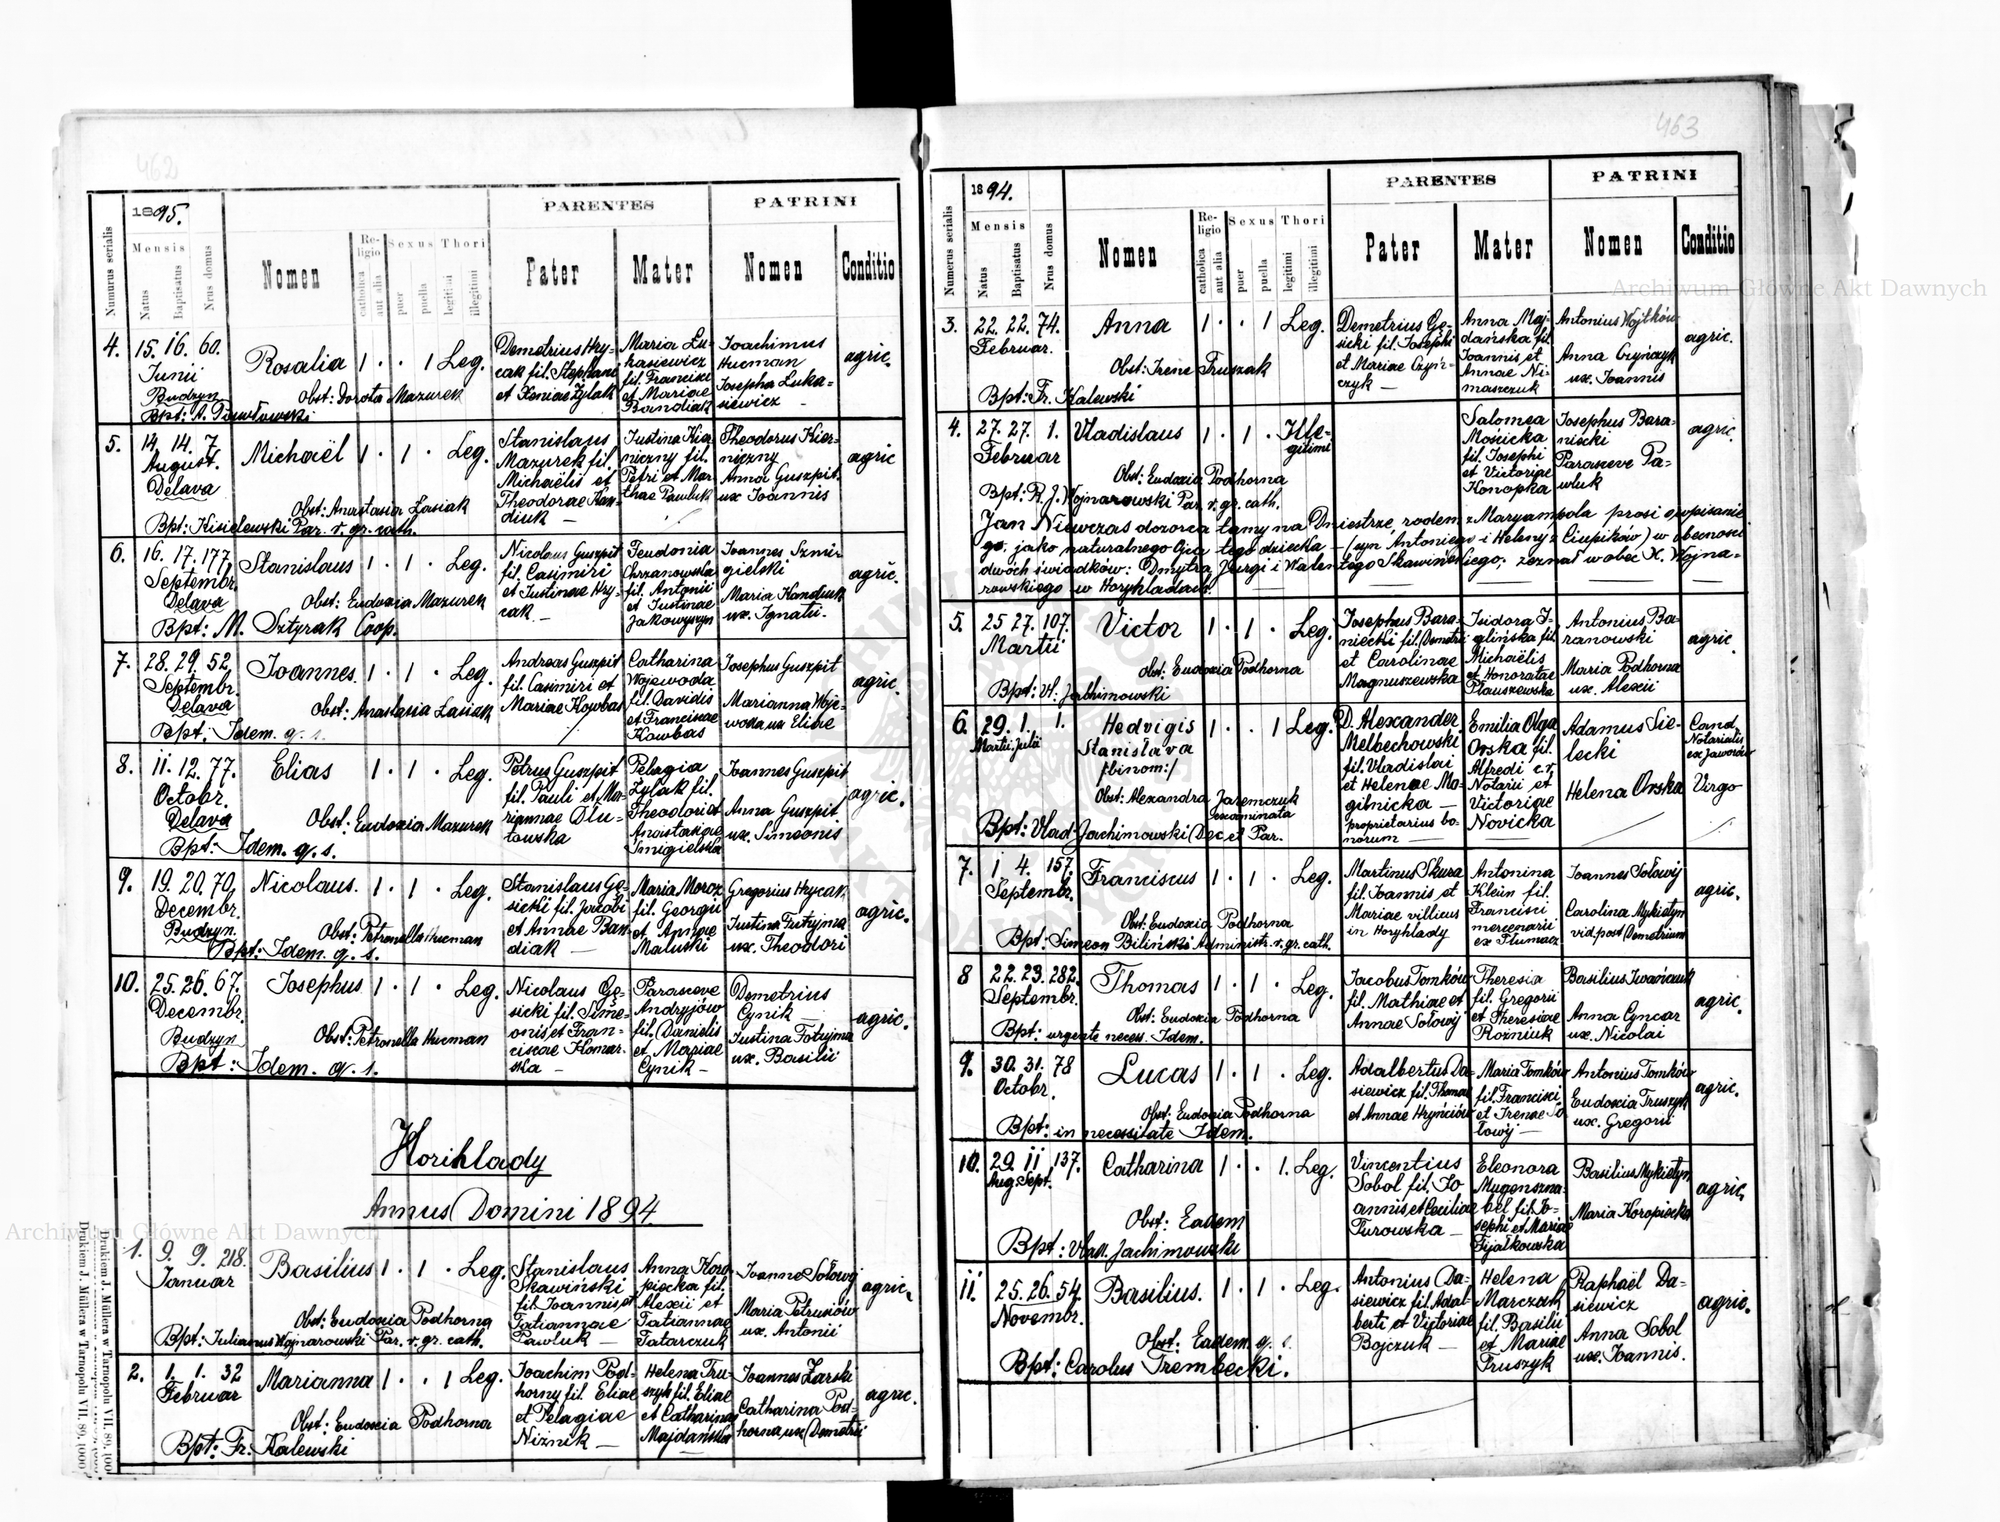 462
1895.
PARENTES
PATRINI
Numurus serialis
Mensis
Natus
Baptisatus
Nrus domus
Nomen
Religio
catholica
aut alia
Sexus
puer
puella
Thori
legitimi
illegitimi
Pater
Mater
Nomen
Conditio
4. 15. 16. 60.
Junii
Budzyn
Rosalia 1 . . 1 Leg.
Obst: Dorota Mazurek
Bpt: A. Pawłowski
Demetrius Hry-
cak fil. Stephani
et Xeniae Żylak
Maria Łu-
kasiewicz
fil. Francisci
et Mariae
Bandiak
Joachimus
Hucman
Josepha Łuka-
siewicz -
agric.
5. 14. 14. 7
August.
Delava
Michaël 1 . 1 . Leg.
Obst: Anastasia Łasiak
Bpt: Kisielewski Par. r. gr. cath.
Stanislaus
Mazurek fil.
Michaëlis et
Theodorae Kan-
diuk -
Justina Kier-
niczny fil.
Petri et Mar-
thae Pawluk
Theodorus Kier-
niczny
Anna Guszpit
ux Joannis
agric
6. 16. 17. 177
Septembr.
Delava
Stanislaus 1 . 1 . Leg.
Obst: Eudoxia Mazurek
Bpt: M. Sztyrak Coop.
Nicolaus Guszpit
fil. Casimiri
et Justinae Hry-
cak -
Feudonia
Chrzanowska
fil. Antonii
et Justinae
Jakowyszyn
Joannes Szmir-
gielski
Maria Kanduk
ux. Ignatii.
agric.
7. 28. 29. 52.
Septembr.
Delava
Joannes. 1 . 1 . Leg.
Obst: Anastasia Łasiak
Bpt: Idem. q. s.
Andreas Guszpit
fil. Casimiri et
Mariae Kowbas
Catharina
Wojewoda
fil. Davidis
et Franciscae
Kowbas
Josephus Guszpit
Marianna Woje-
woda ux Eliae
agric.
8. 11. 12. 77.
Octobr.
Delava
Elias 1 . 1 . Leg.
Obst: Eudoxia Mazurek
Bpt: Idem. q. s.
Petrus Guszpit
fil. Pauli et Ma-
riannae Dłu-
towska
Pelagia
Żylak fil.
Theodori et
Anastasiae
Smigielska
Joannes Guszpit
Anna Guszpit
ux. Simeonis
agric.
9. 19. 20. 79.
Decembr.
Budzyn.
Nicolaus. 1 . 1 . Leg.
Obst: Petronella Hucman
Bpt: Idem. q. s.
Stanislaus Gę-
sicki fil. Jacobi
et Annae Ban-
diak -
Maria Moroz
fil. Georgii
et Annae
Maluski
Gregorius Hrycak
Justina Futryma
ux. Theodori
agric.
10. 25. 26. 67.
Decembr.
Budzyn
Josephus 1 . 1 . Leg.
Obst: Petronella Hucman
Bpt: Idem. q. s.
Nicolaus Gę-
sicki fil. Sime-
onis et Fran-
ciscae Komar-
ska -
Parasceve
Andryjów
fil. Danielis
et Mariae
Cynik -
Demetrius
Cynik -
Justina Fotryma
ux. Basilii
agric.
Horihlady
Annus Domini 1894
1. 9. 9. 218.
Januar
Basilius 1 . 1 . Leg.
Obst: Eudoxia Podhorna
Bpt: Julianus Wojnarowski Par. r. gr. cath.
Stanislaus
Skawiński
fil. Joannis et
Tatiannae
Pawluk -
Anna Koro-
piecka fil.
Alexii et
Tatiannae
Tatarczuk
Joanne Sołowij
Maria Petrusiów
ux. Antonii
agric.
2. 1. 1. 32
Februar
Marianna 1 . . 1 Leg.
Obst: Eudoxia Podhorna
Bpt: Fr. Kalewski
Joachim Pod-
horny fil. Eliae
et Pelagiae
Niznik -
Helena Tru-
szyk fil. Eliae
et Catharinae
Majdańska
Joannes Żarski
Catharina Pod-
horna ux Demetrii
agric.
Drukiem J. Müllera w Tarnopolu VII. 89.
463
1894.
PARENTES
PATRINI
Numerus serialis
Mensis
Natus
Baptisatus
Nrus domus
Nomen
Religio
catholica
aut alia
Sexus
puer
puella
Thori
legitimi
illegitimi
Pater
Mater
Nomen
Conditio
3. 22. 22. 74.
Februar.
Anna 1 . . 1 Leg.
Obst: Irene Truszak
Bpt: Fr. Kalewski
Demetrius Gę-
sicki fil. Josephi
et Mariae Czyń-
czyk -
Anna Maj-
dańska fil.
Joannis et
Annae Ni-
maszczuk
Antonius Wojtków
Anna Czyńczyk
ux. Joannis
agric.
4. 27. 27. 1.
Februar
Vladislaus 1 . 1 . Ille-
gitimi
Obst: Eudoxia Podhorna
Bpt: R. J. Wojnarowski Par. r. gr. cath.
Salomea
Mościcka
fil. Josephi
et Victoriae
Konopka
Josephus Bara-
niecki
Parasceve Pa-
wluk
agric.
Jan Niewczas dozorca tamy na Dniestrze, rodem z Maryampola prosi o wpisanie
go, jako naturalnego Ojca tego dziecka - (syn Antoniego i Heleny z Ciupików) w obecności
dwóch świadków: Dmytra Jeurgi i Walentego Skawińskiego; zeznał wobec X. Wojna-
rowskiego w Horyhladach.
5. 25 27. 107.
Martii
Victor 1 . 1 . Leg.
Obst: Eudoxia Podhorna
Bpt: Vl. Jachimowski
Josephus Bara-
niecki fil. Demetri
et Carolinae
Magnuszewska
Isidora I-
glińska fil.
Michaëlis
et Honoratae
Płauszewska
Antonius Ba-
ranowski
Maria Podhorna
ux. Alexii
agric.
6. 29. 1. 1.
Martii Julii
Hedvigis 1 . . 1 Leg.
Stanislava
/:binom:/
Obst: Alexandra Jaremczuk
examinata
Bpt: Vlad. Jachimowski Dec. et Par.
D. Alexander
Melbechowski
fil. Vladislai
et Helenae Mo-
gilnicka -
proprietarius bo-
norum -
Emilia Olga
Orska fil.
Alfredi c. r.
Notarii et
Victoriae
Novicka
Adamus Sie-
lecki
Helena Orska
Cand
Notarialis
ex Jaworów
Virgo
7. 1 4. 157.
Septembr.
Franciscus 1 . 1 . Leg.
Obst: Eudoxia Podhorna
Bpt: Simeon Biliński Administr. r. gr. cath.
Martinus Skura
fil. Joannis et
Mariae villicus
in Horyhlady
Antonina
Klein fil.
Francisci
mercenarii
ex Tłumacz
Joannes Sołowij
Carolina Mykietyn
vid. post Demetrium
agric.
8 22. 23. 282.
Septembr.
Thomas 1 . 1 . Leg.
Obst: Eudoxia Podhorna
Bpt: urgente necess. Idem.
Jacobus Tomków
fil. Mathiae et
Annae Sołowij
Theresia
fil. Gregorii
et Theresiae
Rożniuk
Basilius Iwańczuk
Anna Cyncar
ux. Nicolai
agric.
9. 30. 31. 78
Octobr.
Lucas 1 . 1 . Leg.
Obst: Eudoxia Podhorna
Bpt: in necessitate Idem.
Adalbertus Da-
siewicz fil. Thomae
et Annae Hryńciów
Maria Tomków
fil. Francisci
et Irenae So-
łowij -
Antonius Tomków
Eudoxia Truszyk
ux. Gregorii
agric.
10. 29. 11 137.
Aug. Sept.
Catharina 1 . . 1. Leg.
Obst: Eadem
Bpt: Vlad. Jachimowski
Vincentius
Sobol fil. Jo-
annis et Ceciliae
Turowska -
Eleonora
Mugenszna-
bel fil. Jo-
sephi et Mariae
Fijałkowska
Basilius Mykietyn
Maria Koropiecka
agric.
11. 25. 26. 54.
Novembr.
Basilius. 1 . 1 . Leg.
Obst: Eadem. q. s.
Bpt: Carolus Trembecki.
Antonius Da-
siewicz fil. Adal-
berti et Victoriae
Bojczuk -
Helena
Marczak
fil. Basilii
et Mariae
Truszyk
Raphaël Da-
siewicz
Anna Sobol
ux. Joannis.
agric.
Archiwum Główne Akt Dawnych
Archiwum Główne Akt Dawnych